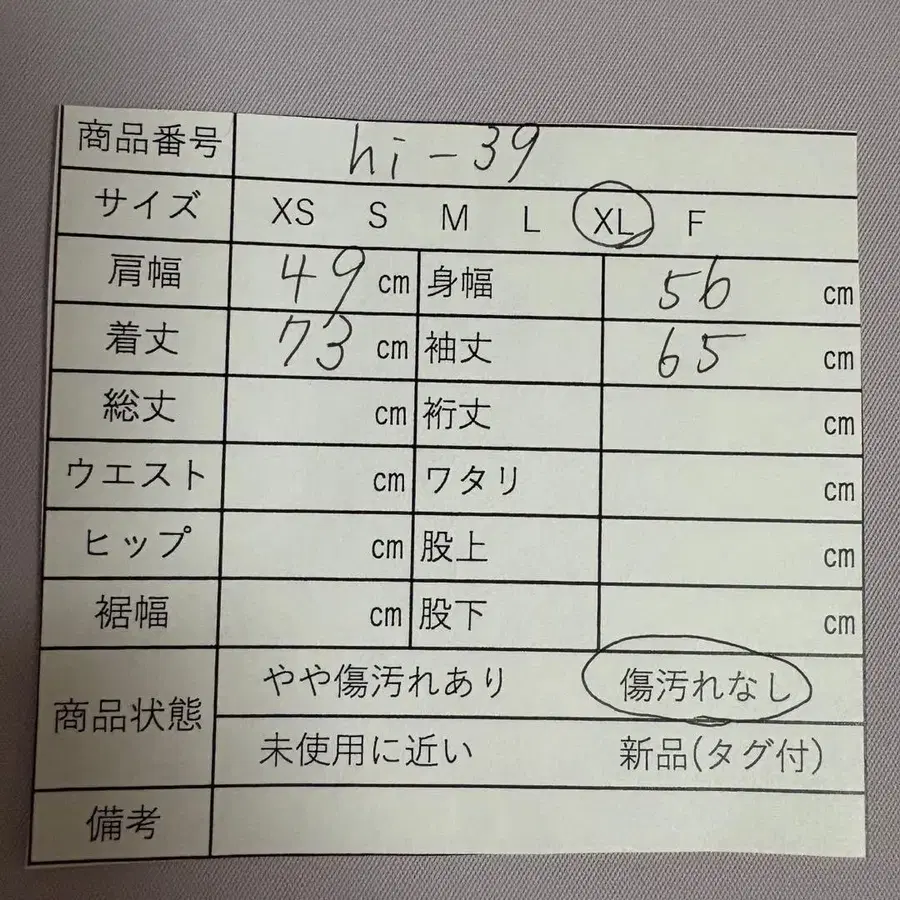 商品番号 hi-39
サイズ XS S M L XL F
肩幅 49 cm 身幅 56 cm
着丈 73 cm 袖丈 65 cm
総丈 cm 裄丈 cm
ウエスト cm ワタリ cm
ヒップ cm 股上 cm
裾幅 cm 股下 cm
商品状態 やや傷汚れあり 傷汚れなし
未使用に近い 新品(タグ付)
備考